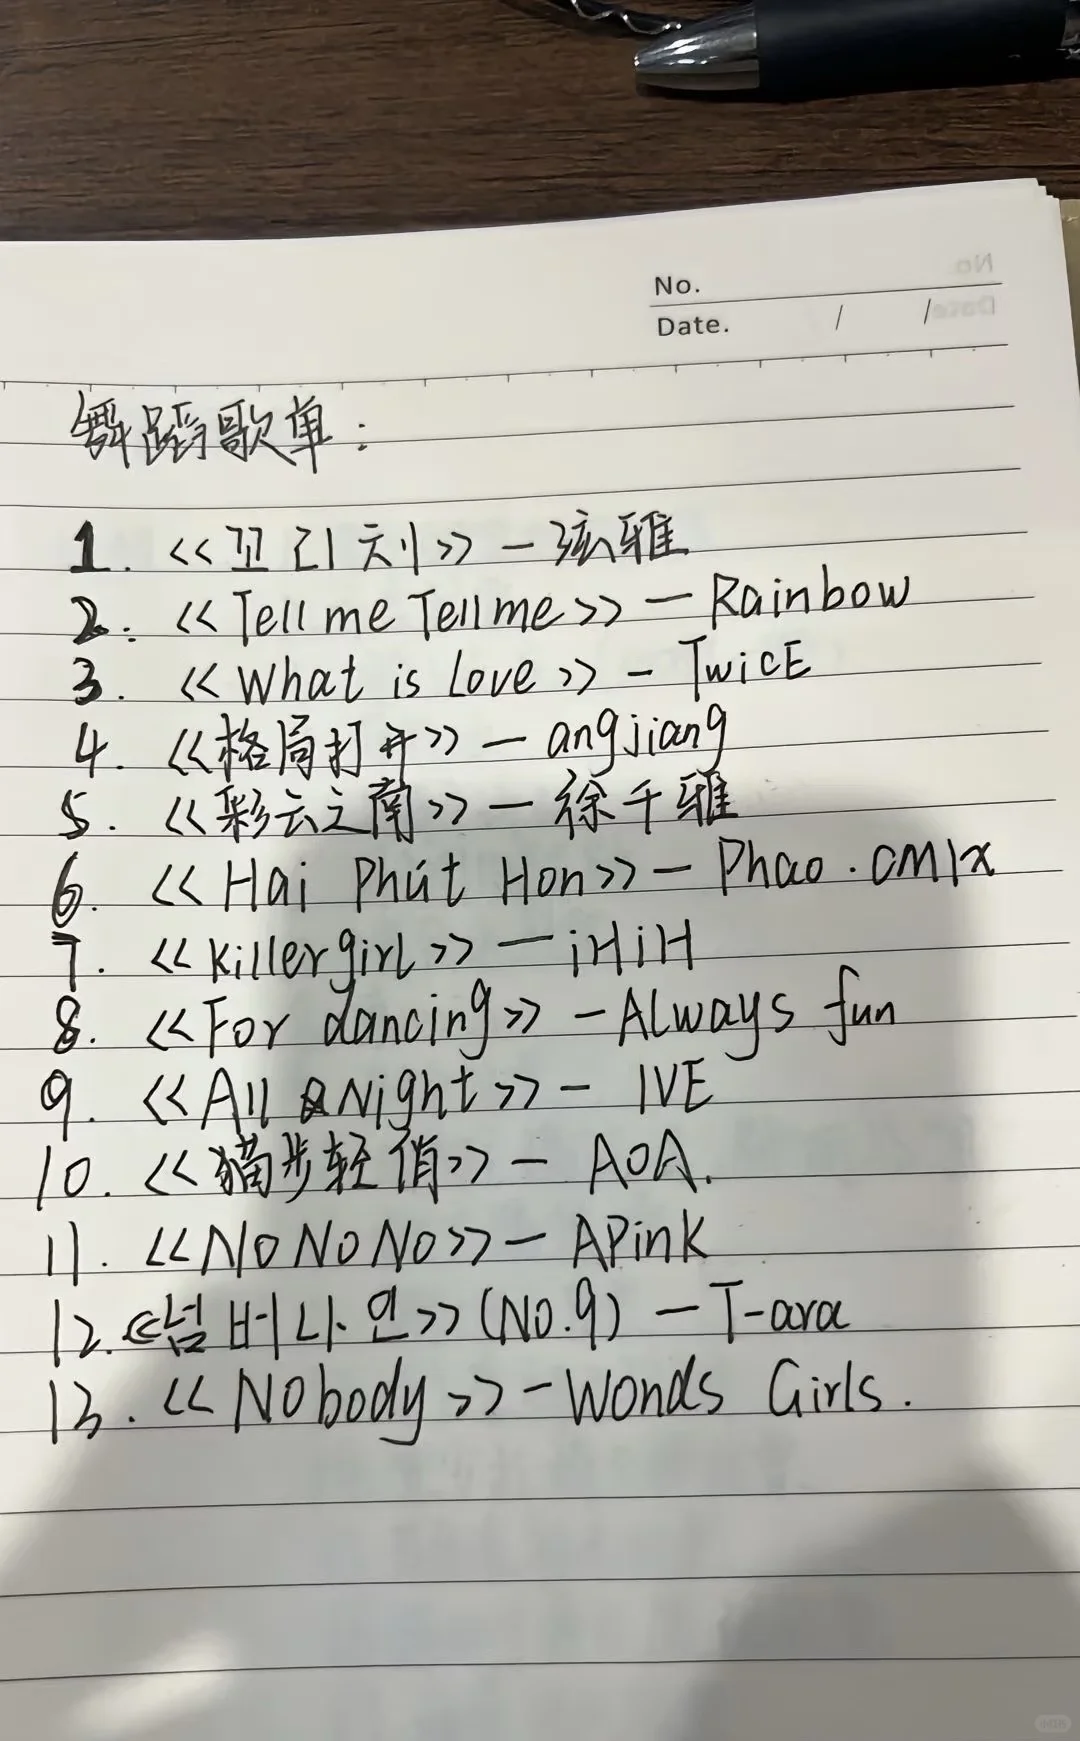 No.
Date. / /
舞蹈歌单:
1. <<꼬리치>> - 泫雅
2. <<Tell me Tell me>> - Rainbow
3. <<What is Love>> - TwicE
4. <<格局打开>> - angjiang
5. <<彩云之南>> - 徐千雅
6. <<Hai Phút Hon>> - Phao.CM1x
7. <<Killergirl>> - iHiH
8. <<For dancing>> - Always fun
9. <<All Night>> - IVE
10. <<猫步轻俏>> - AOA.
11. <<NO NO NO>> - APink
12. <<넘버나인>> (NO.9) - T-ara
13. <<Nobody>> - Wonds Girls.